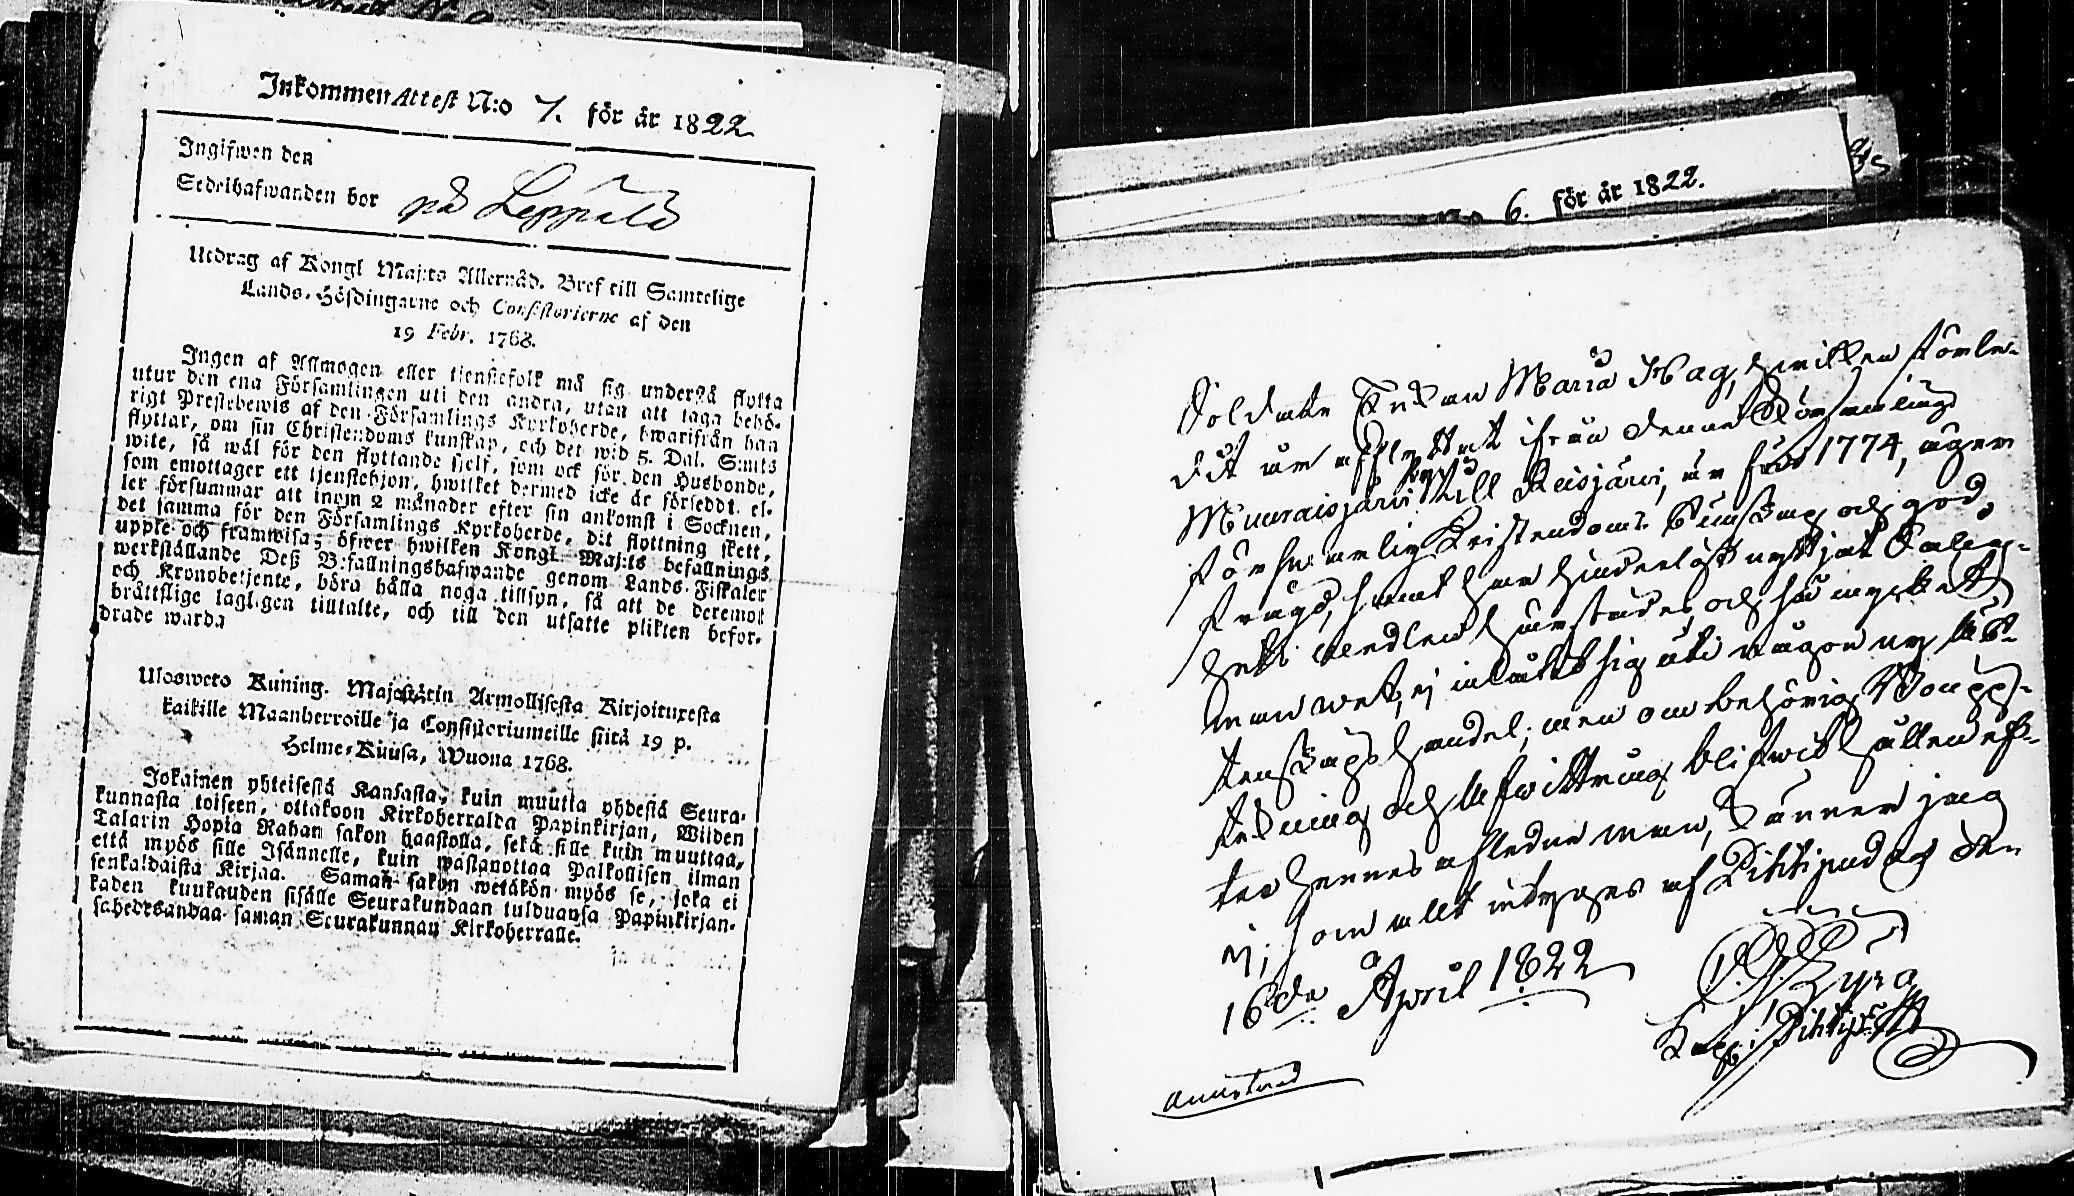 Inkommen Attest N:o 7. för år 1822
Ingifwen den
Sedelhafwanden bor på Leppälä
Utdrag af Kongl Maj:ts Allernåd. Bref till Samtelige
Lands-Höfdingarne och Consistorierne af den
19 Febr. 1768.
Ingen af Allmogen eller tienstefolk må sig understå flytta
utur den ena Församlingen uti den andra, utan att taga behö-
rigt Prestebewis af den Församlings Kyrkoherde, hwarifrån han
flyttar, om sin Christendoms kunskap, och det wid 5. Dal. S:mts
wite, så wäl för den flyttande sjelf, som ock för den Husbonde,
som emottager ett tjenstehjon, hwilket dermed icke är försedt el-
ler försummar att inom 2 månader efter sin ankomst i Socknen,
det samma för den Församlings Kyrkoherde, dit flyttning skett,
uppte och framwisa; öfwer hwilken Kongl. Maj:ts befallnings
werkställande Deß Befallningshafwande genom Lands-Fiskaler
och Kronobetjente, böra hålla noga tillsyn, så att de deremot
bråttslige lagligen tilltalte, och till den utsatte plikten befor-
drade warda
Ulosweto Kuning. Majestätin Armollisesta Kirjoituxesta
kaikille Maanherroille ja Consistoriumeille siitä 19 p.
Helme-Kuusa, Wuona 1768.
Jokainen yhteisestä Kansasta, kuin muutta yhdestä Seura-
kunnasta toiseen, ottakoon Kirkoherralda Papinkirjan, Wiiden
Talarin Hopia Rahan sakon haastolla, sekä sille kuin muuttaa,
että myös sille Isännelle, kuin wastanottaa Palkollisen ilman
senkaldaista Kirjaa. Saman sakon wetäkön myös se, joka ei
kaden kuukauden sisälle Seurakundaan tulduansa Papinkirjan-
sa edesandaa saman Seurakunnan Kirkoherralle.
6. för år 1822.
Soldats Enkan Maria Hag, hwilken förle-
dit år afflyttat ifrån denne Församling
Muuraisjärvi till Reisjärvi, är född 1774, äger
försvarlig Kristendoms kunskap och god
frägd, samt har hinderlöst nyttjat Salig-
hets medlen härstädes, och så mycket
man wet, ej inlåtit sig uti någon ny äk-
tenskaps handel; men om behörig Boupp-
teckning och afwittring blifwit hållen ef-
ter hennes aflidne man, känner jag
ej; som allt intygas af Pihtipudas den
16de April 1822
Kapl. i Pihtip.